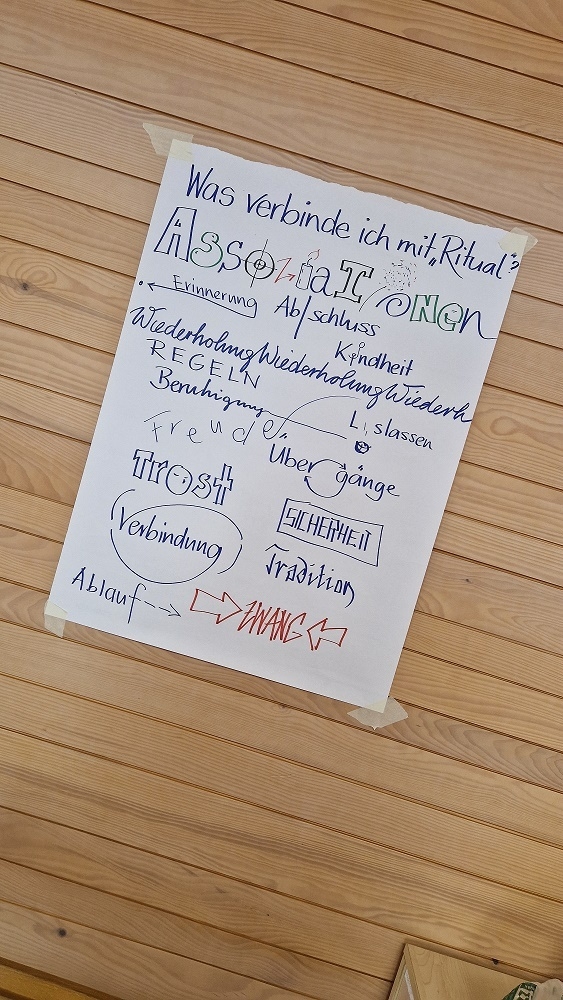 Was verbinde ich mit „Ritual"?
AssoziaTiONEn
Erinnerung
Ab/schluss
Kindheit
WiederholungWiederholungWiederh
REGELN
Beruhigung
L slassen
Freude
Übergänge
Trost
SICHERHEIT
Verbindung
Tradition
Ablauf
ZWANG